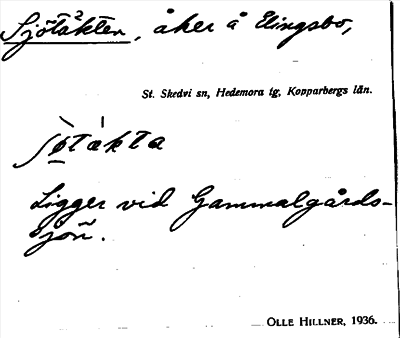 Sjötäkten, åker å Elingsbo,
St. Skedvi sn, Hedemora tg, Kopparbergs län.
ʃø̀tákta
Ligger vid Gammalgårds-
sjön.
OLLE HILLNER, 1936.